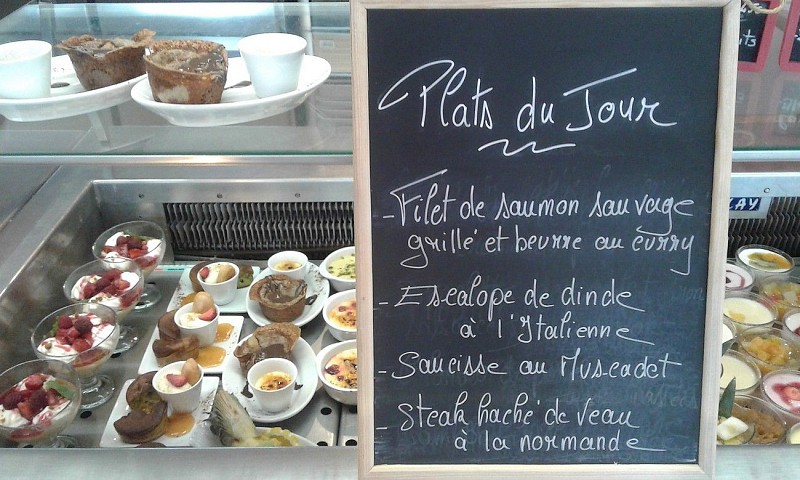 Plats du Jour
- Filet de saumon sauvage
grillé et beurre au curry
- Escalope de dinde
à l'Italienne
- Saucisse au Muscadet
- Steak haché de veau
à la normande